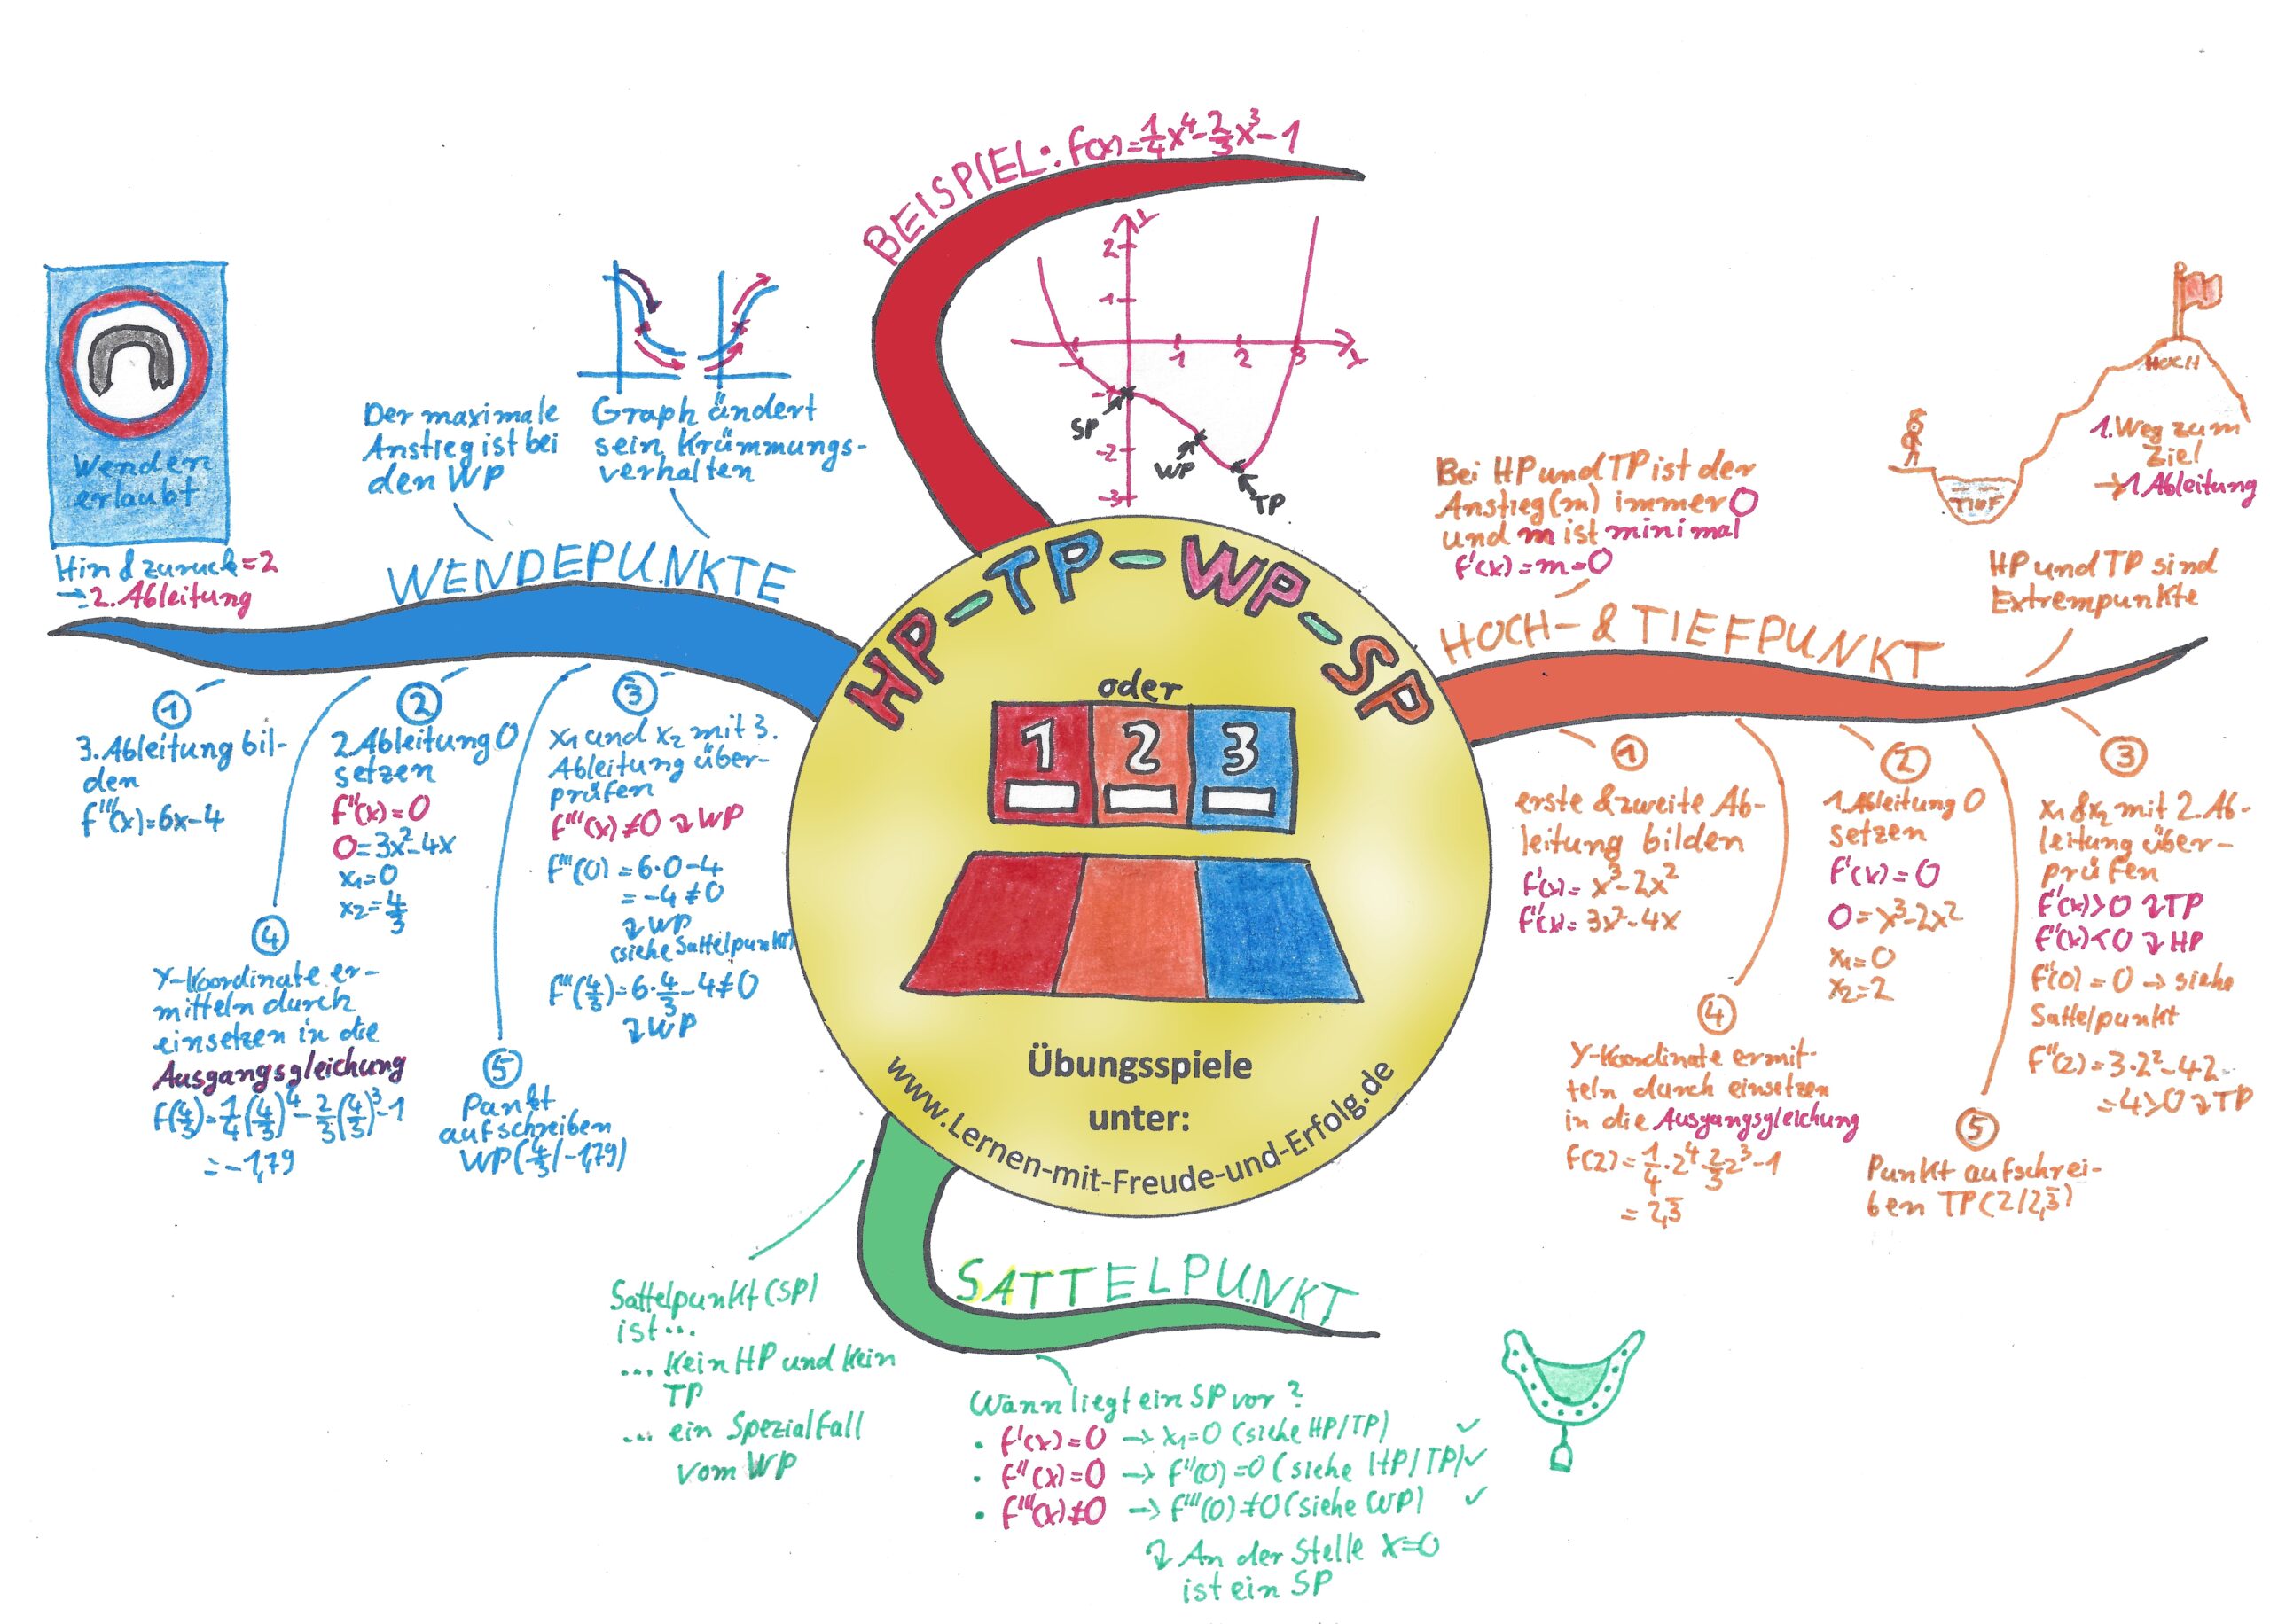 BEISPIEL: f(x)=1/4x⁴-2/3x³-1
Y
2
1
-1
1
2
3
X
-1
-2
-3
SP
WP
TP
Wenden
erlaubt
Hin & zurück=2
→2. Ableitung
Der maximale
Anstieg ist bei
den WP
Graph ändert
sein Krümmungs-
verhalten
WENDEPUNKTE
1
3. Ableitung bil-
den
f'''(x)=6x-4
2
2. Ableitung 0
setzen
f''(x)=0
0=3x²-4x
x₁=0
x₂=4/3
3
x₁ und x₂ mit 3.
Ableitung über-
prüfen
f'''(x)≠0 ↴WP
f'''(0)=6·0-4
=-4≠0
↴WP
(siehe Sattelpunkt)
f'''(4/3)=6·4/3-4≠0
↴WP
4
Y-Koordinate er-
mitteln durch
einsetzen in die
Ausgangsgleichung
f(4/3)=1/4(4/3)⁴-2/3(4/3)³-1
=-1,79
5
Punkt
aufschreiben
WP(4/3/-1,79)
HP-TP-WP-SP
oder
1 2 3
Übungsspiele
unter:
www.Lernen-mit-Freude-und-Erfolg.de
Bei HP und TP ist der
Anstieg(m) immer 0
und m ist minimal
f'(x)=m=0
HOCH
TIEF
1. Weg zum
Ziel
→1. Ableitung
HP und TP sind
Extrempunkte
HOCH- & TIEFPUNKT
1
erste & zweite Ab-
leitung bilden
f'(x)= x³-2x²
f''(x)= 3x²-4x
2
1. Ableitung 0
setzen
f'(x)=0
0=x³-2x²
x₁=0
x₂=2
3
x₁ & x₂ mit 2. Ab-
leitung über-
prüfen
f''(x)>0 ↴TP
f''(x)<0 ↴HP
f''(0)=0 → siehe
Sattelpunkt
f''(2)=3·2²-4·2
=4>0 ↴TP
4
Y-Koordinate ermit-
teln durch einsetzen
in die Ausgangsgleichung
f(2)=1/4·2⁴-2/3·2³-1
=2,3̅
5
Punkt aufschrei-
ben TP(2/2,3̅)
SATTELPUNKT
Sattelpunkt (SP)
ist...
... kein HP und kein
TP
... ein Spezialfall
vom WP
Wann liegt ein SP vor?
• f'(x)=0 → x₁=0 (siehe HP/TP) ✓
• f''(x)=0 → f''(0)=0 (siehe HP/TP) ✓
• f'''(x)≠0 → f'''(0)≠0 (siehe WP) ✓
↴ An der Stelle x=0
ist ein SP